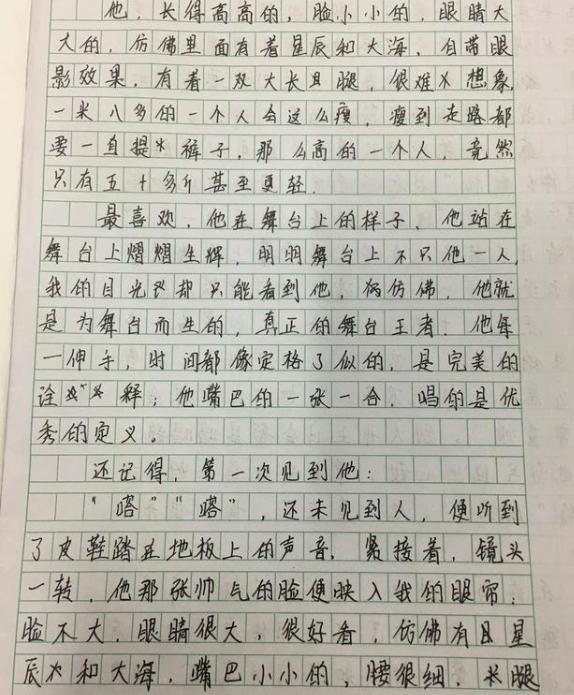 他，长得高高的，脸小小的，眼睛大
大的，仿佛里面有着星辰和大海，自带眼
影效果，有着一双大长腿，很难想象，
一米八多的一个人会这么瘦，瘦到走路都
要一直提裤子，那么高的一个人，竟然
只有五十多斤甚至更轻．
最喜欢，他在舞台上的样子，他站在
舞台上熠熠生辉，明明舞台上不只他一人，
我的目光却只能看到他，仿佛，他就
是为舞台而生的，真正的舞台王者：他每
一伸手，时间都像定格了似的，是完美的
诠释；他嘴巴的一张一合，唱的是优
秀的定义。
还记得，第一次见到他：
“嗒”“嗒”，还未见到人，便听到
了皮鞋踏在地板上的声音．紧接着，镜头
一转，他那张帅气的脸便映入我的眼帘：
脸不大，眼睛很大，很好看，仿佛有星
辰和大海，嘴巴小小的，腰很细，长腿